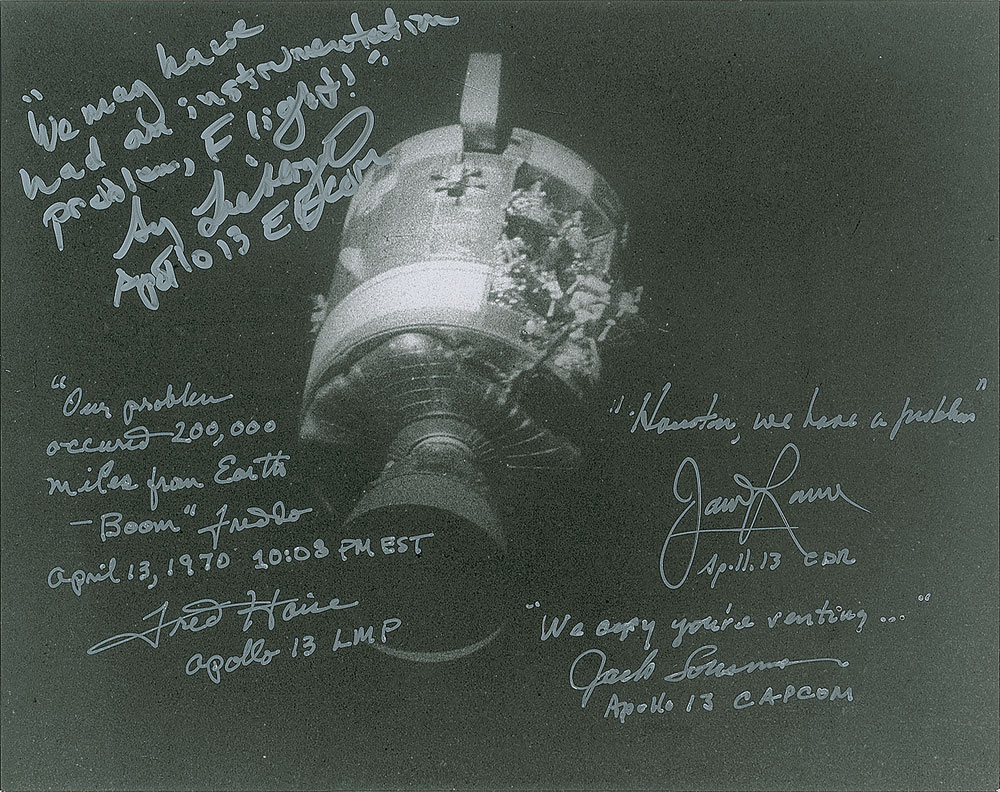 "We may have
had an instrumentation
problem, Flight!"
Sy Liebergot
Apollo 13 EECOM
"Our problem
occured 200,000
miles from Earth
— Boom" Freddo
April 13, 1970 10:08 PM EST
Fred Haise
Apollo 13 LMP
"Houston, we have a problem"
James Lovell
Apollo 13 CDR
"We copy you're venting..."
Jack Lousma
Apollo 13 CAPCOM